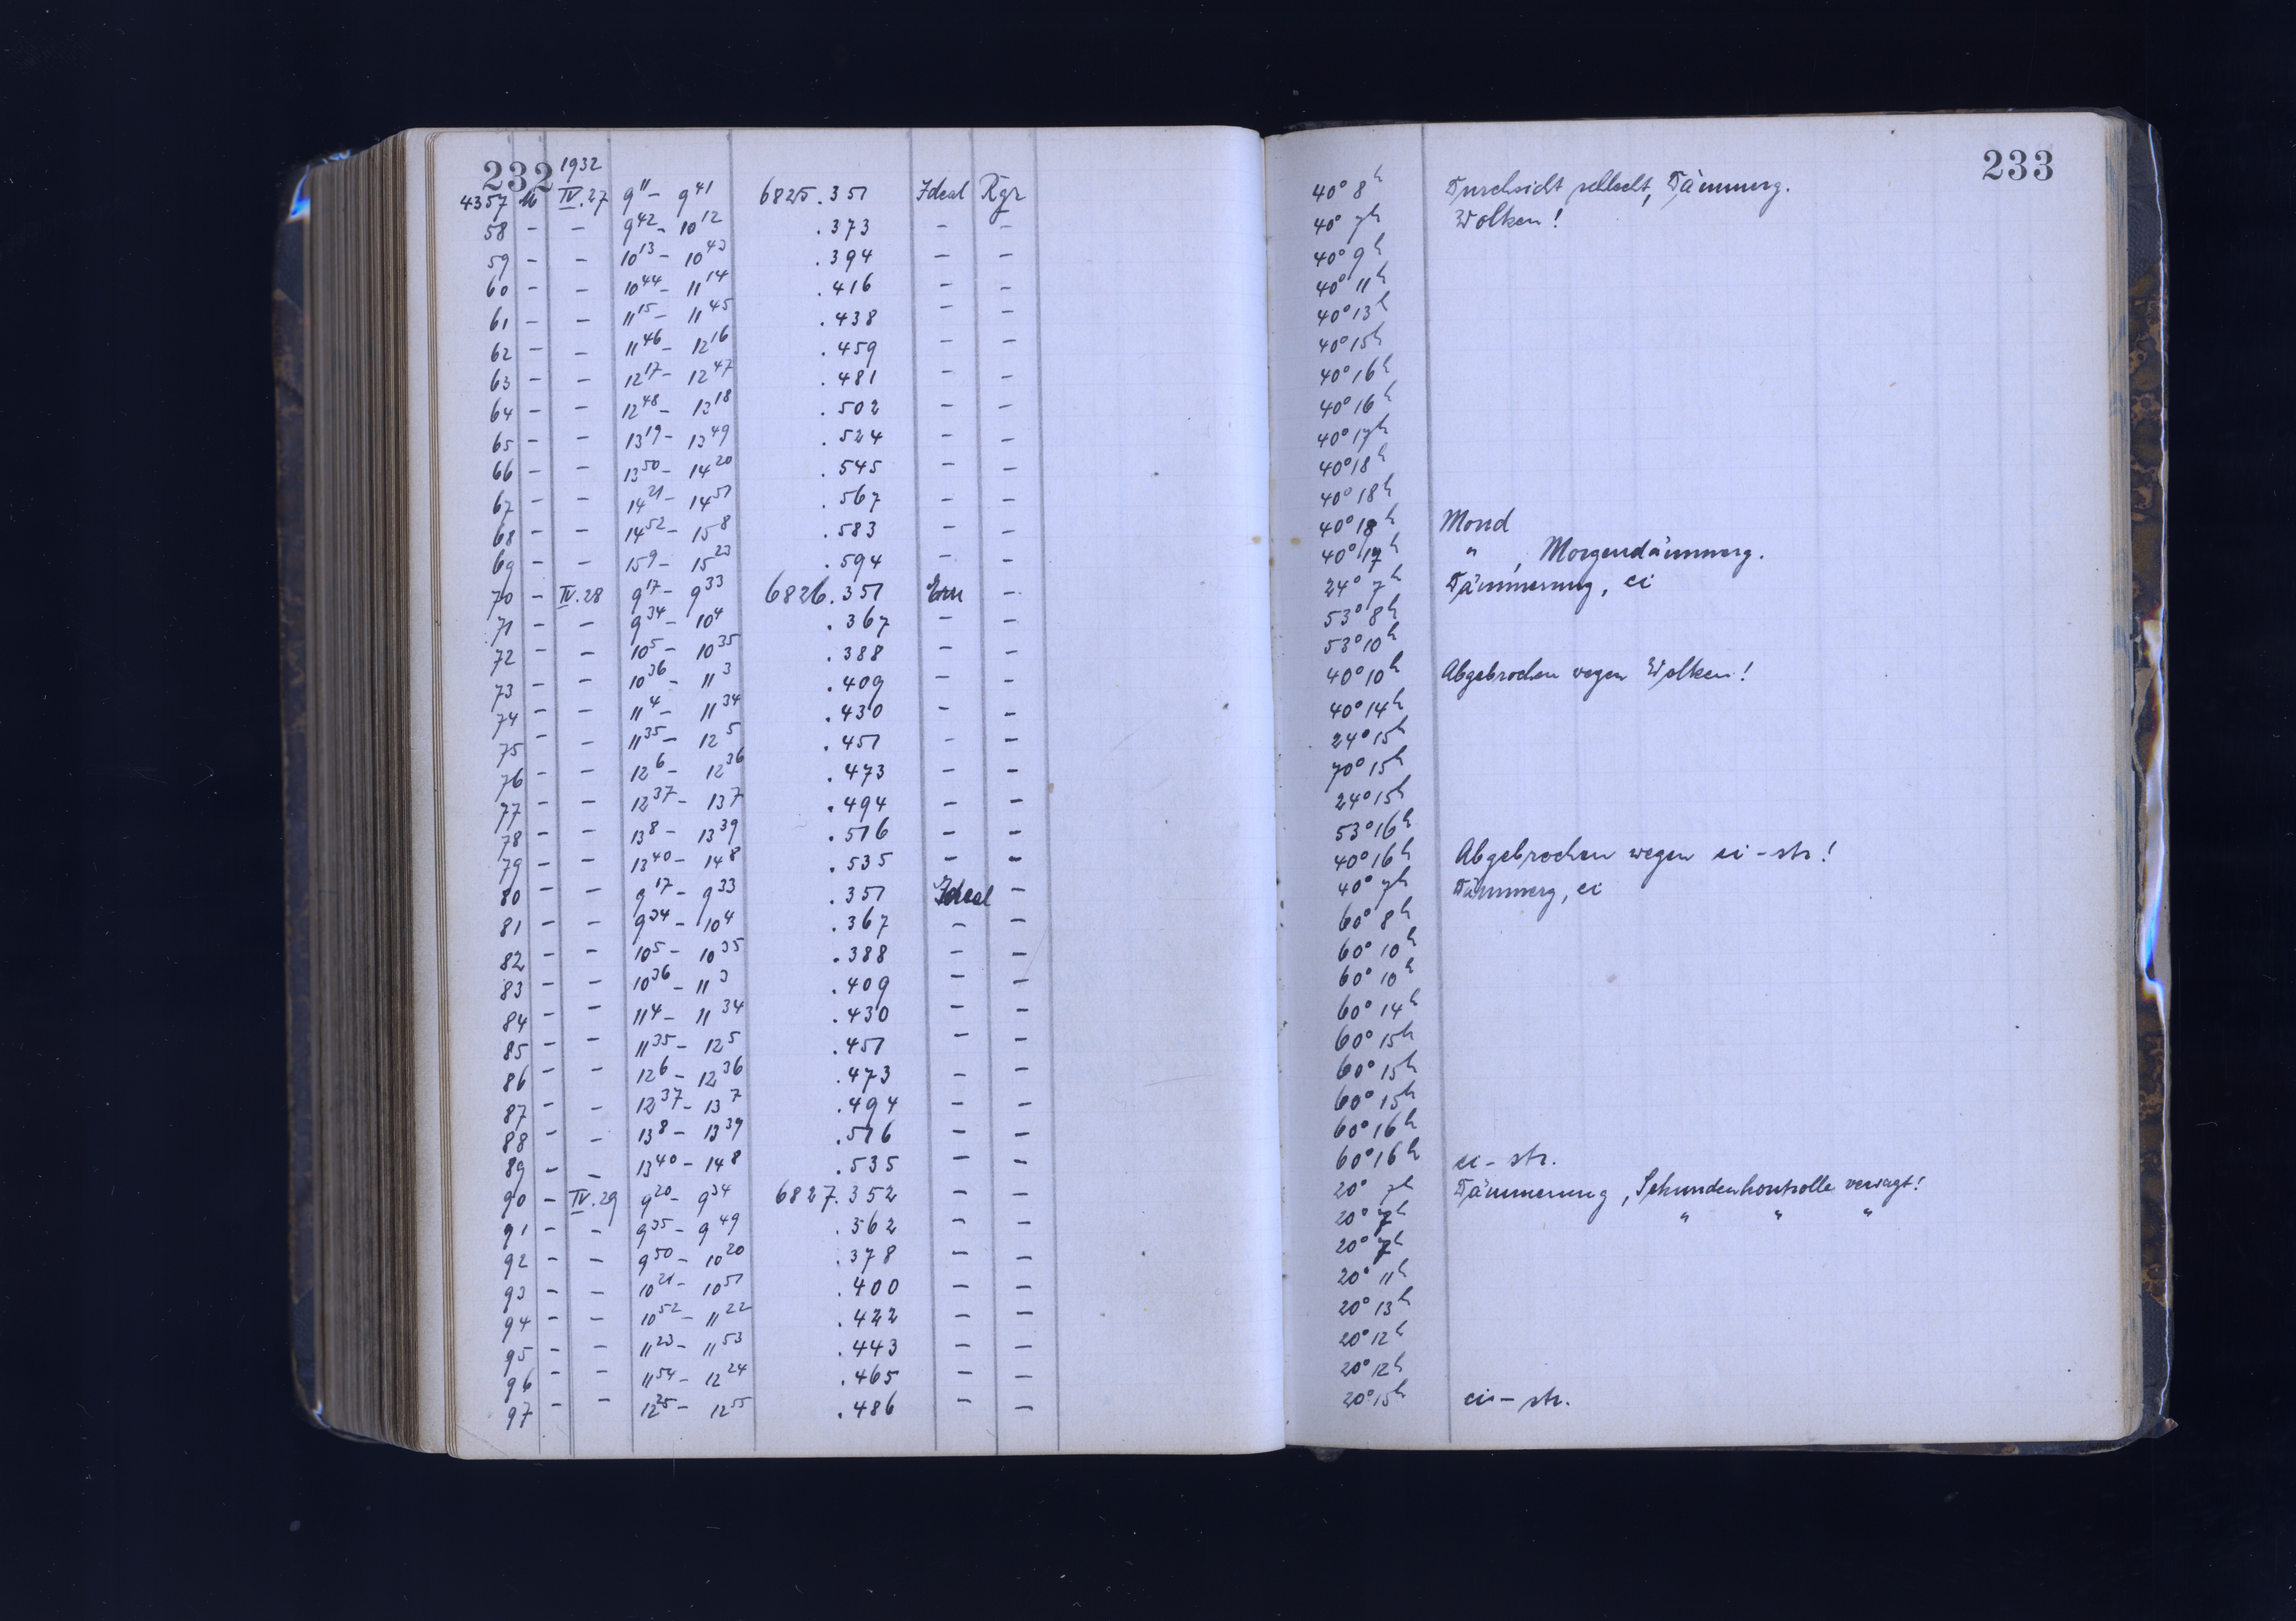 232 1932
4357 M IV.27 9¹¹ – 9⁴¹ 6825.351 Ideal Rgr
58 – – 9⁴² – 10¹² .373 – –
59 – – 10¹³ – 10⁴³ .394 – –
60 – – 10⁴⁴ – 11¹⁴ .416 – –
61 – – 11¹⁵ – 11⁴⁵ .438 – –
62 – – 11⁴⁶ – 12¹⁶ .459 – –
63 – – 12¹⁷ – 12⁴⁷ .481 – –
64 – – 12⁴⁸ – 13¹⁸ .502 – –
65 – – 13¹⁹ – 13⁴⁹ .524 – –
66 – – 13⁵⁰ – 14²⁰ .545 – –
67 – – 14²¹ – 14⁵¹ .567 – –
68 – – 14⁵² – 15⁸ .583 – –
69 – – 15⁹ – 15²³ .594 – –
70 – IV.28 9¹⁷ – 9³³ 6826.351 Ern –
71 – – 9³⁴ – 10⁴ .367 – –
72 – – 10⁵ – 10³⁵ .388 – –
73 – – 10³⁶ – 11³ .409 – –
74 – – 11⁴ – 11³⁴ .430 – –
75 – – 11³⁵ – 12⁵ .451 – –
76 – – 12⁶ – 12³⁶ .473 – –
77 – – 12³⁷ – 13⁷ .494 – –
78 – – 13⁸ – 13³⁹ .516 – –
79 – – 13⁴⁰ – 14⁸ .535 – –
80 – – 9¹⁷ – 9³³ .351 Ideal –
81 – – 9³⁴ – 10⁴ .367 – –
82 – – 10⁵ – 10³⁵ .388 – –
83 – – 10³⁶ – 11³ .409 – –
84 – – 11⁴ – 11³⁴ .430 – –
85 – – 11³⁵ – 12⁵ .451 – –
86 – – 12⁶ – 12³⁶ .473 – –
87 – – 12³⁷ – 13⁷ .494 – –
88 – – 13⁸ – 13³⁹ .516 – –
89 – – 13⁴⁰ – 14⁸ .535 – –
90 – IV.29 9²⁰ – 9³⁴ 6827.352 – –
91 – – 9³⁵ – 9⁴⁹ .362 – –
92 – – 9⁵⁰ – 10²⁰ .378 – –
93 – – 10²¹ – 10⁵¹ .400 – –
94 – – 10⁵² – 11²² .422 – –
95 – – 11²³ – 11⁵³ .443 – –
96 – – 11⁵⁴ – 12²⁴ .465 – –
97 – – 12²⁵ – 12⁵⁵ .486 – –
233
40° 8ʰ Durchsicht schlecht, Dämmerg.
40° 7ʰ Wolken!
40° 9ʰ
40° 11ʰ
40° 13ʰ
40° 15ʰ
40° 16ʰ
40° 16ʰ
40° 17ʰ
40° 18ʰ
40° 18ʰ
40° 18ʰ Mond
40° 17ʰ " , Morgendämmerg.
24° 7ʰ Dämmerung, ci
53° 8ʰ
53° 10ʰ
40° 10ʰ Abgebrochen wegen Wolken!
40° 14ʰ
24° 15ʰ
70° 15ʰ
24° 15ʰ
53° 16ʰ
40° 16ʰ Abgebrochen wegen ci – str!
40° 7ʰ Dämmerg, ci
60° 8ʰ
60° 10ʰ
60° 10ʰ
60° 14ʰ
60° 15ʰ
60° 15ʰ
60° 15ʰ
60° 16ʰ
60° 16ʰ ci – str.
20° 7ʰ Dämmerung, Sekundenkontrolle versagt!
20° 7ʰ " " "
20° 7ʰ
20° 11ʰ
20° 13ʰ
20° 12ʰ
20° 12ʰ
20° 15ʰ ci – str.